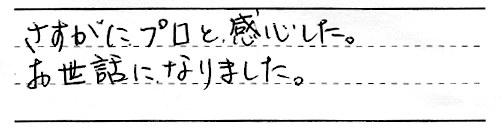 さすがにプロと感心した。
お世話になりました。